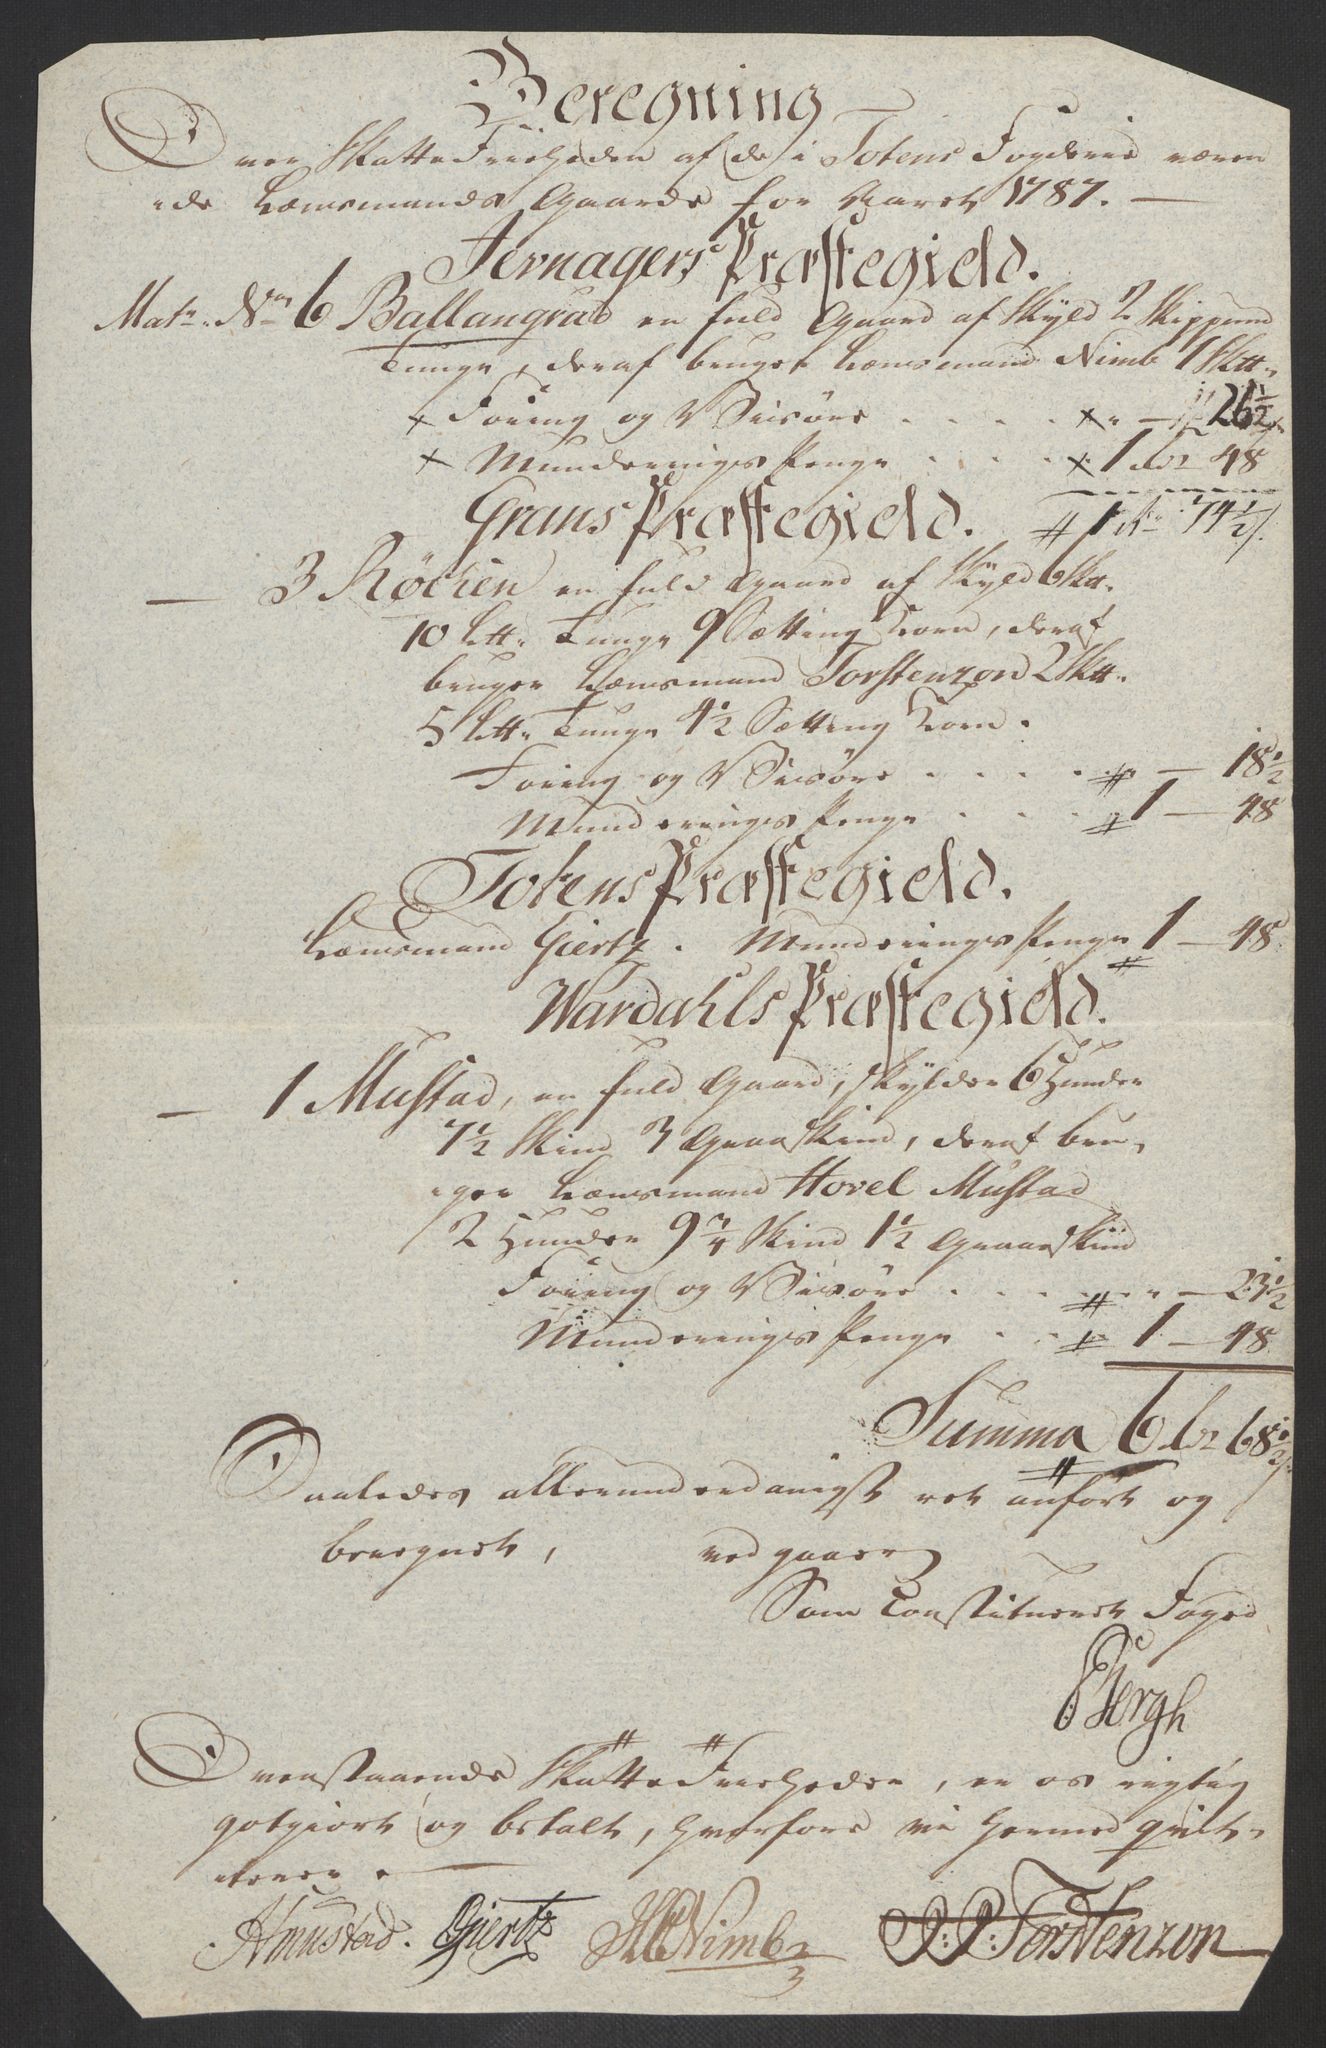 Beregning
Over Skatte Friheden af de i Totens Fogderie væren
-de Lænsmands Gaarde for Aaret 1787. —
Jevnagers Præstegield.
Matr. No 6 Ballangrud en fuld Gaard af Skyld 2 Skippund
Tunge, deraf bruger Lænsmand Nimb 1 Sktt.
Foring og V Visöre . . . . — 26½
Munderings Penge . . . 1 dr 48
Grans Præstegield. 1 dr 74½ s.
— 3 Röcken en fuld Gaard af Skyld 6 Sktt.
10 Ltt. Tunge 9 Sætting Korn, deraf
bruger Lænsmand Torstenzon 2 Sktt.
5 Ltt. Tunge 4½ Sætting Korn.
Foring og V Visöre . . . . — 18½
Munderings Penge . . . 1 — 48
Totens Præstegield.
Lænsmand Giertz . Munderings Penge 1 — 48
Wardahls Præstegield.
— 1 Mustad, en fuld Gaard, skylder 6 Huder
7½ Skind 3 Graaskind, deraf bru-
-ger Lænsmand Hovel Mustad
2 Huder 9¾ Skind 1½ Graaskind
Foring og V Visöre . . . . — 23½
Munderings Penge . . 1 — 48
Summa 6 dr 68½ s.
Saaledes allerunderdanigst ret anfört og
beregnet, vedgaaer
Som Constitueret Foged
Bergh
Ovenstaaende Skatte Friheder, er os rigtig
gotgiort og betalt, hvorfore vi hermed qvit-
-terer. —
HMustad. Giertz Nimb P: Torstenzon